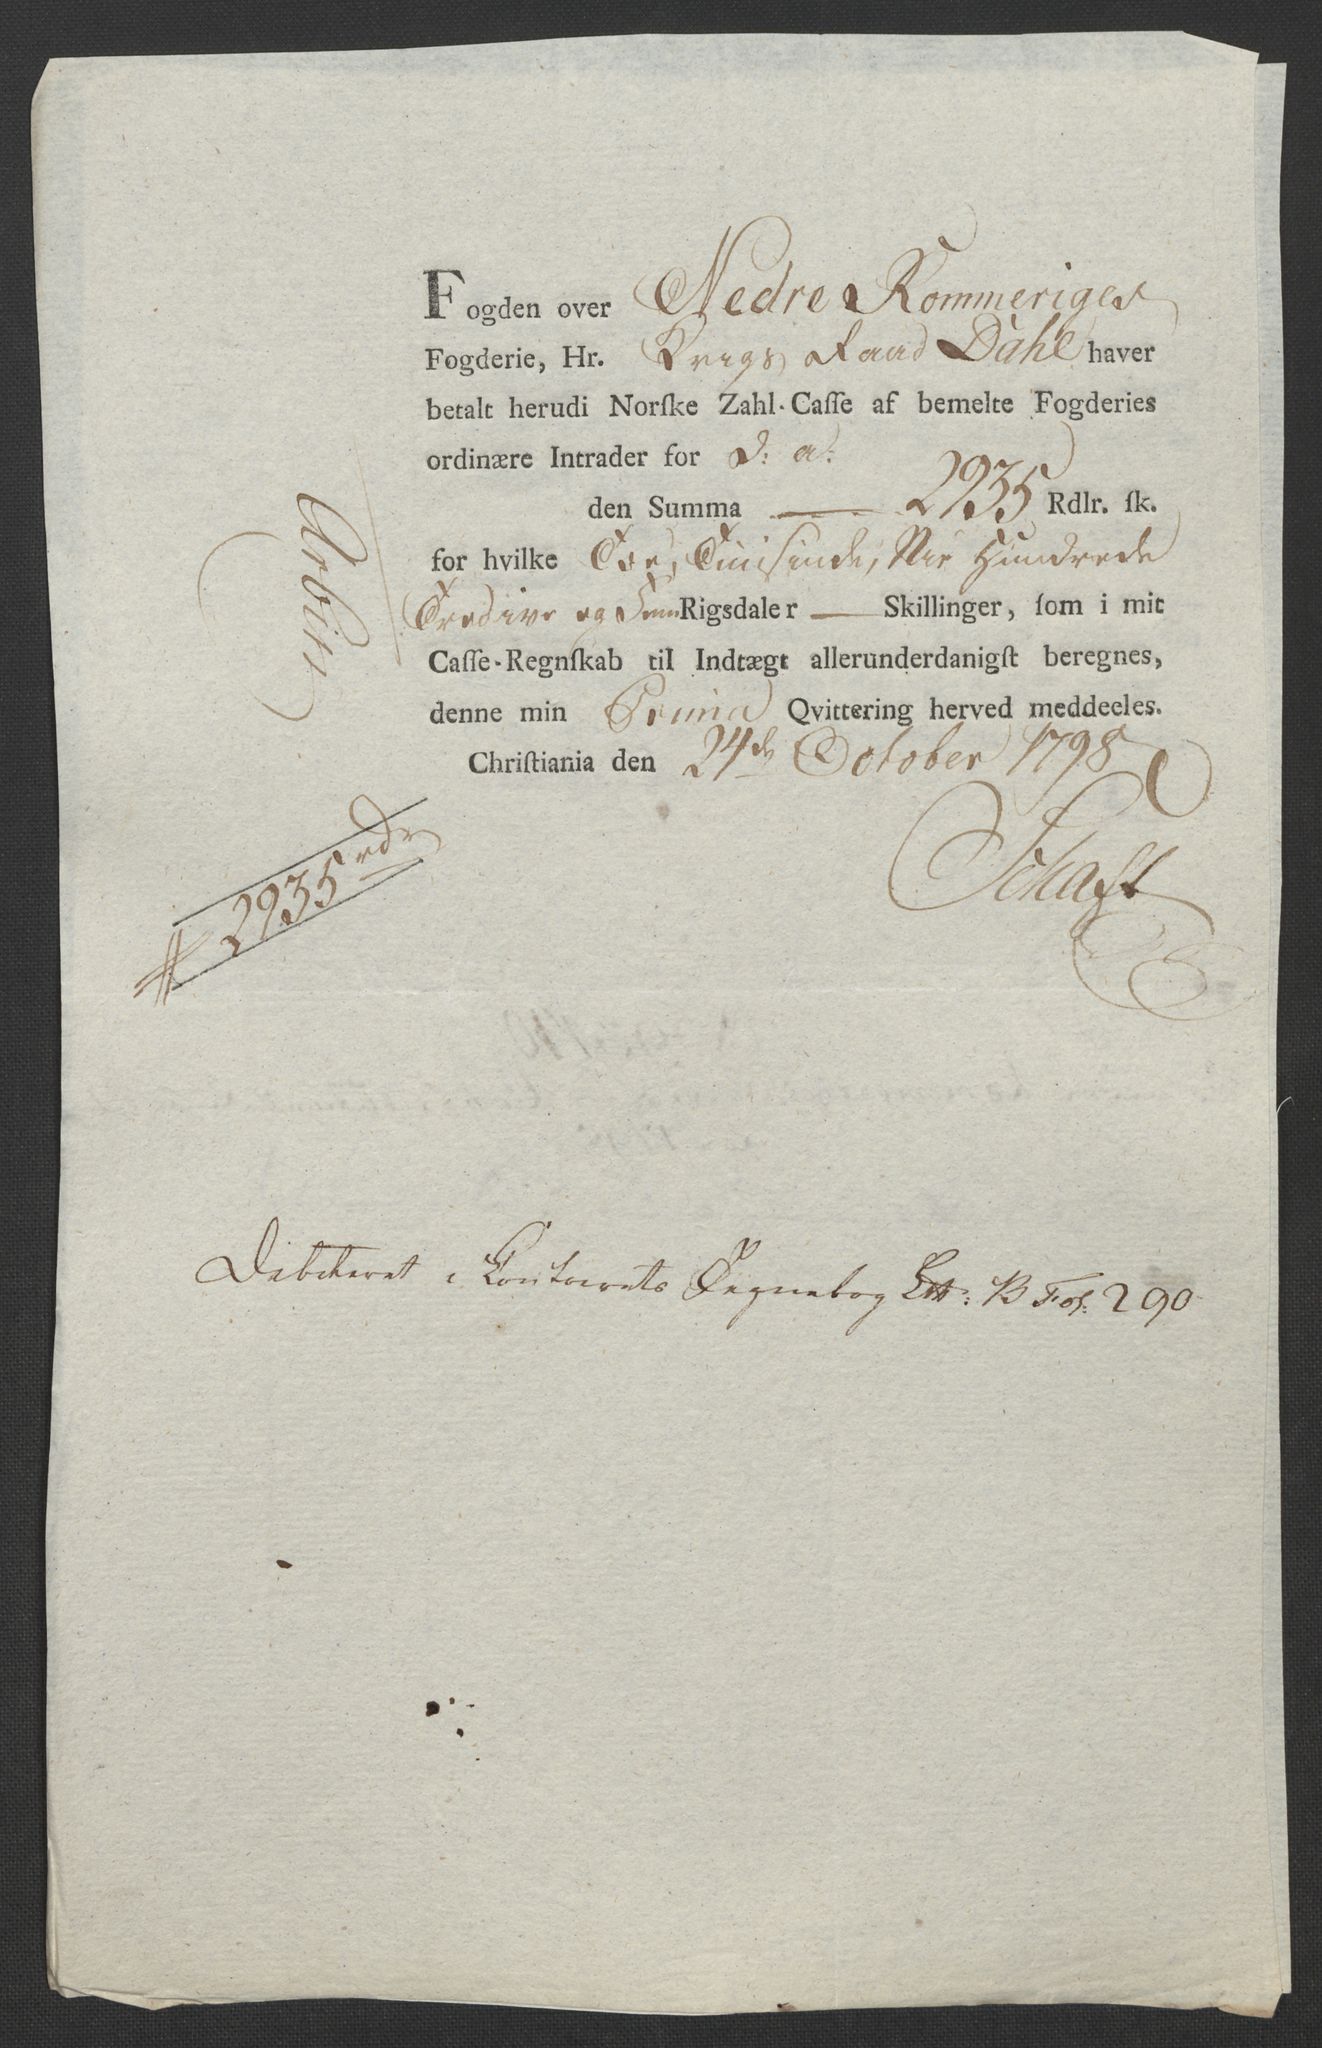 Fogden over Nedre Rommeriges
Fogderie, Hr. Krigs Raad Dahl haver
betalt herudi Norſke Zahl-Caſſe af bemelte Fogderies
ordinære Intrader for d: a:
den Summa — 2935 Rdlr. ſk.
for hvilke Toe, Tuusinde, Nie Hundrede
Tredive og Fem Rigsdaler — Skillinger, ſom i mit
Caſſe-Regnſkab til Indtægt allerunderdanigſt beregnes,
denne min Prima Qvittering herved meddeeles.
Chriſtiania den 24de October 1798
Schaft
2935 rdr
Debiteret i Contoirets Tegnebog Litt: B Fol: 290